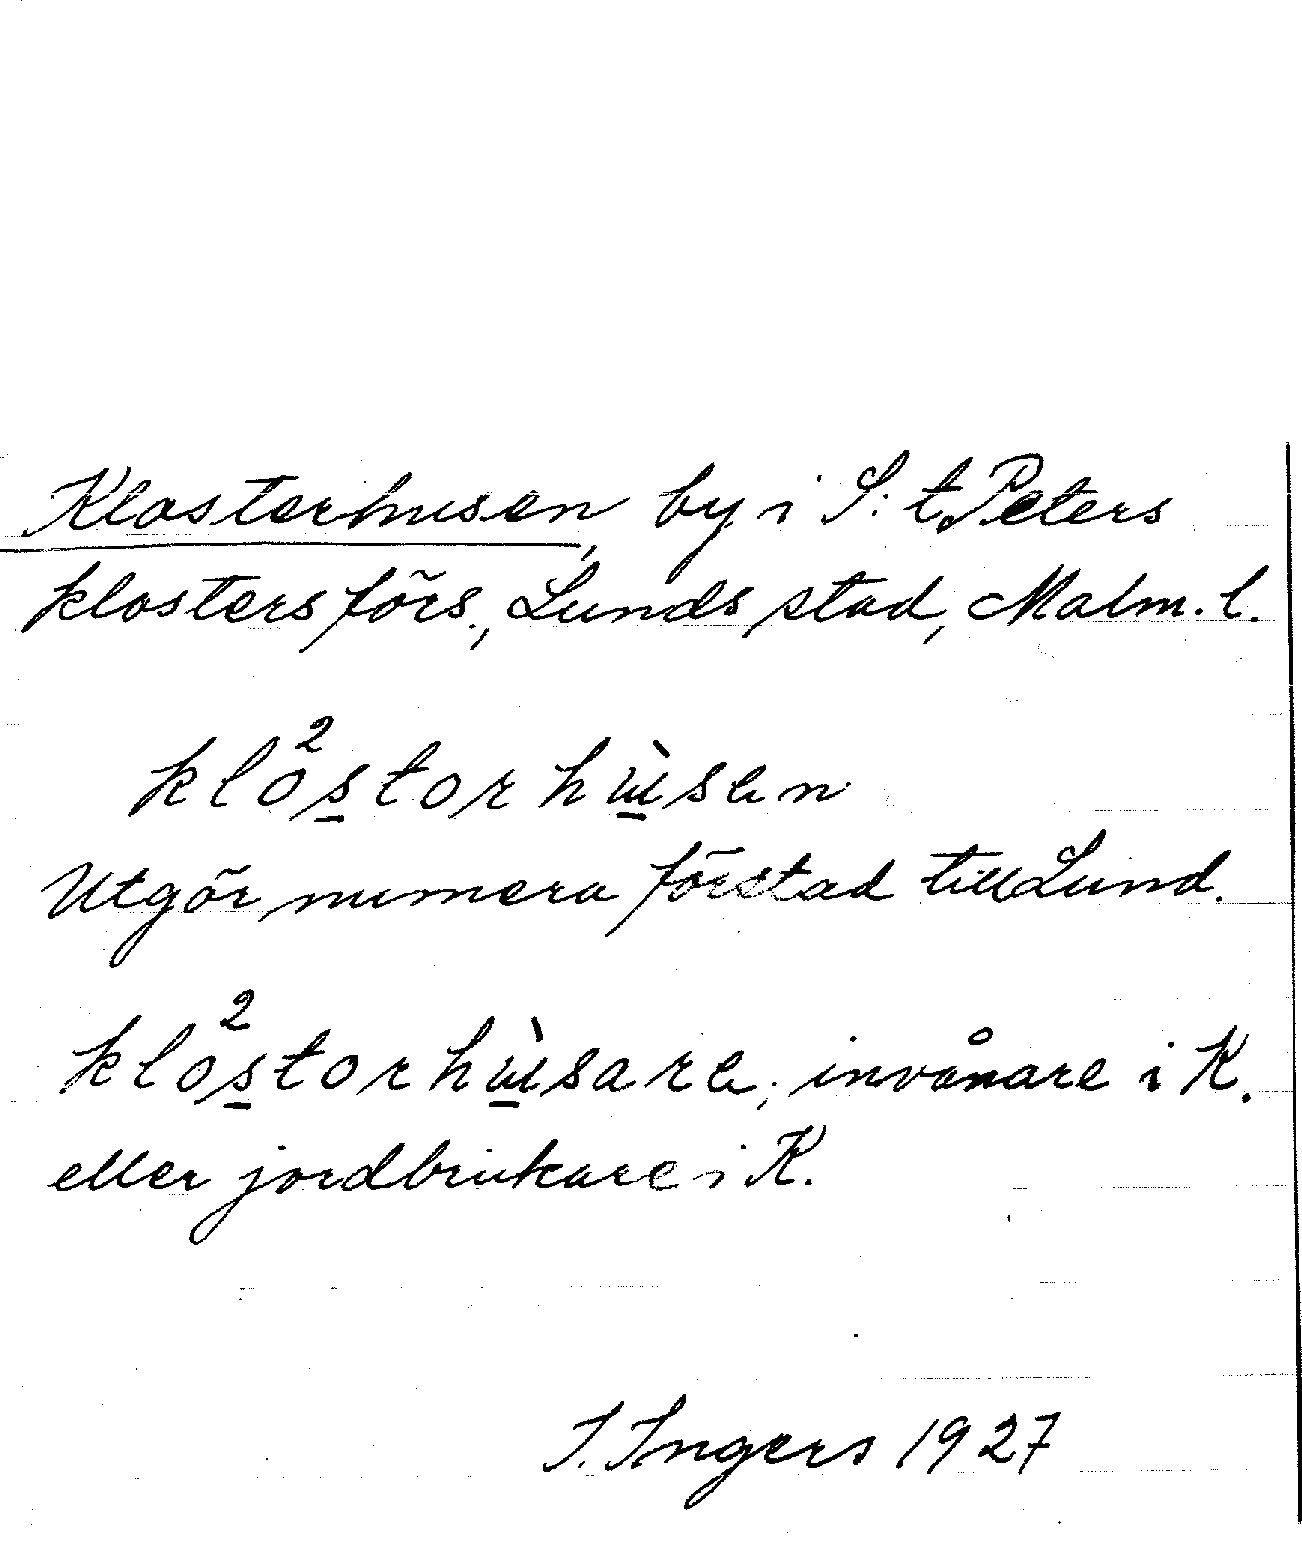 Klosterhusen, by i S:t Peters
klosters förs., Lunds stad, Malm. l.
klo²storhùsen
Utgör numera förstad till Lund.
klo²storhùsare, invånare i K.
eller jordbrukare i K.
I. Ingers 1927